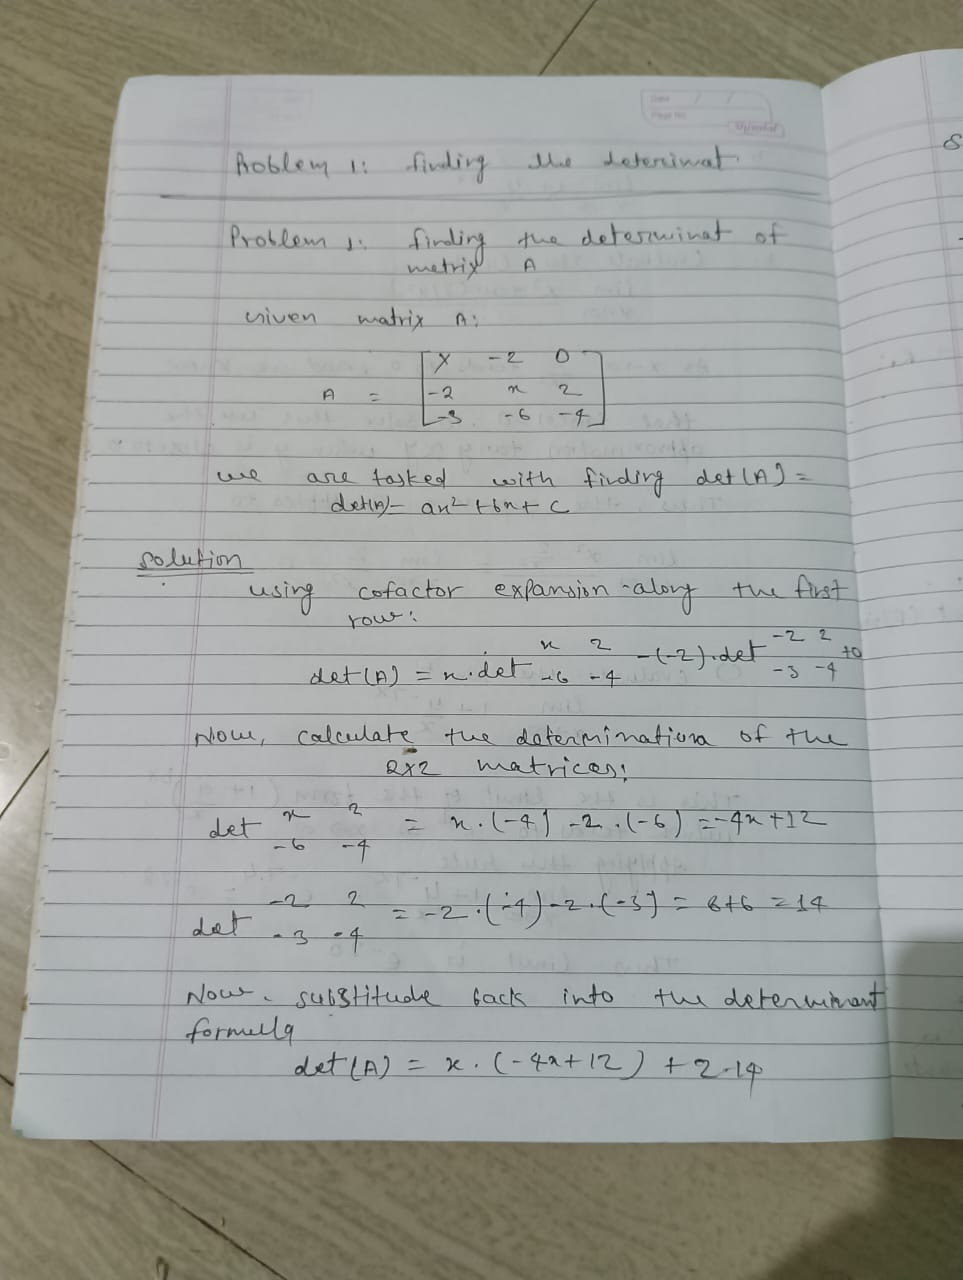 Date / /
Page No
Problem 1: finding the deterinat.
Problem 1: finding the determinat of
metrix A
Given matrix A:
A = [ x -2 0
-2 x 2
-3 -6 -4 ]
we are tasked with finding det(A) =
det(A)= ax² + bx + c
solution
using cofactor expansion along the first
row:
det(A) = x. det x 2 -(-2).det -2 2 +0
-6 -4 -3 -4
Now, calculate the determinationa of the
2x2 matrices:
det x 2 = x.(-4) -2.(-6) = -4x+12
-6 -4
det -2 2 = -2.(-4)-2.(-3) = 8+6 = 14
-3 -4
Now. substitude back into the determinant
formulla
det(A) = x. (-4x+12) + 2.14